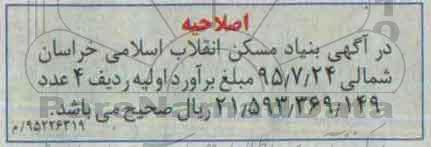 اصلاحیه
در آگهی بنیاد مسکن انقلاب اسلامی خراسان
شمالی ۹۵/۷/۲۴ مبلغ برآورد اولیه ردیف ۴ عدد
۲۱/۵۹۳/۳۶۹/۱۴۹ ریال صحیح می باشد.
۹۵۲۲۶۳۱۹/م